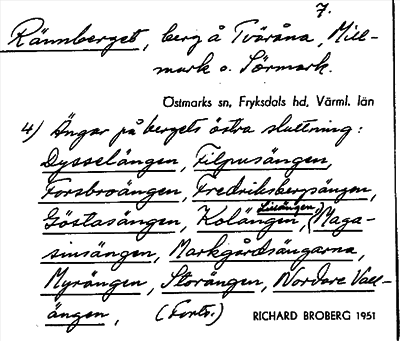 7.
Rännberget, berg å Tväråna, Mill-
mark o. Sörmark.
Östmarks sn, Fryksdals hd, Värml. län
4) Ängar på bergets östra sluttning:
Dysselängen, Filpusängen,
Forsbroängen, Fredriksbergsängen,
Lisängen
Göstasängen, Kolängen, (Maga-
sinsängen, Markgårdsängarna,
Myrängen, Storängen, Nordare Vall-
ängen, (Forts.)
RICHARD BROBERG 1951